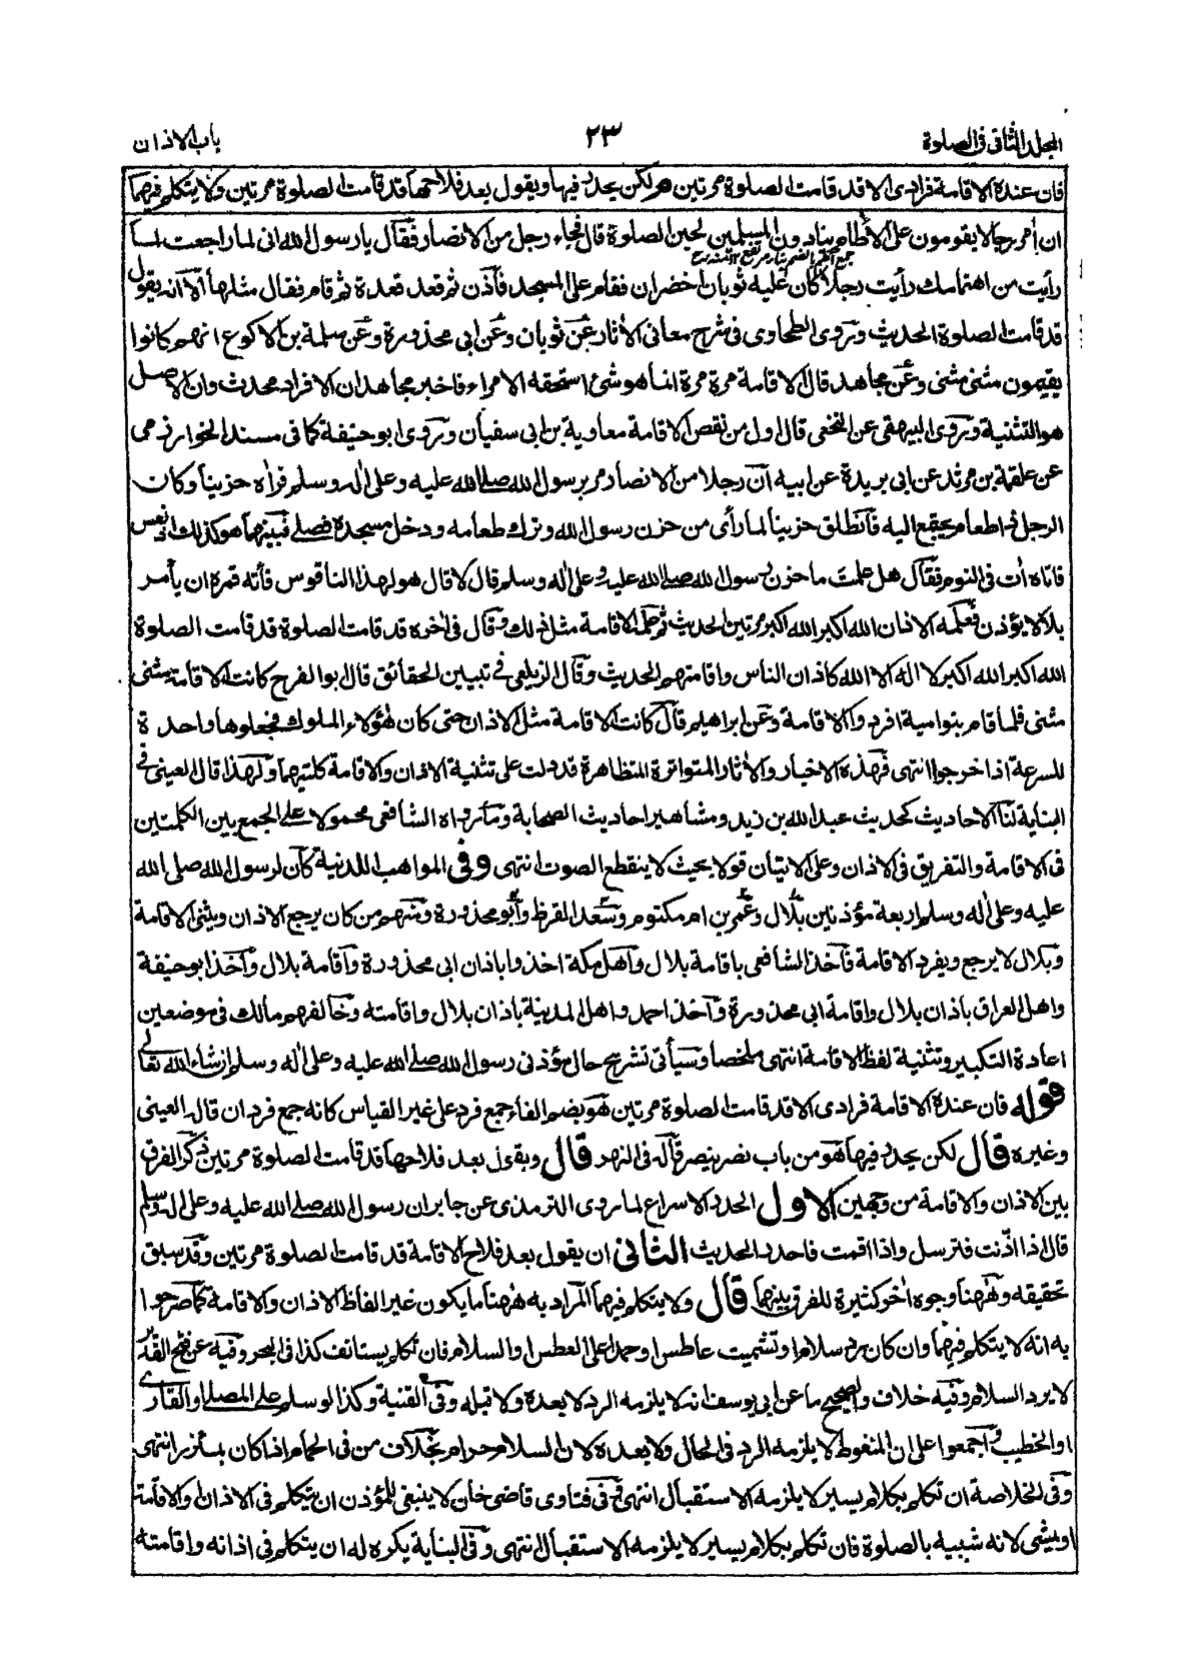 المجلد الثانى فى الصلوة
٢٣
باب الاذان
فان عنده الاقامة فرادى الا قد قامت الصلوة مرتين هر لكن يحدر فيها ويقول بعد فلاحها قد قامت الصلوة مرتين ولا يتكلم فيهما
ان أمر رجالا يقومون على الأطام ينادون المسلمين لحين الصلوة قال فجاء رجل من الانصار فقال يا رسول الله انى لما رجعت لما
رأيت من اهتمامك رأيت رجلا كان عليه ثوبان اخضران فقام على المسجد فأذن ثم قعد قعدة ثم قام فقال مثلها الا انه يقول
قد قامت الصلوة الحديث وروى الطحاوى فى شرح معانى الأثار عن ثوبان وعن ابى محذورة وعن سلمة بن الاكوع انهم كانوا
يقيمون مثنى مثنى وعن مجاهد قال الاقامة مرة مرة انما هو شئ استحقه الامراء فاخبر مجاهد ان الافراد محدث وان الاصل
هو التثنية وروى البيهقى عن النخعى قال اول من نقص الاقامة معاوية بن ابى سفيان وروى ابو حنيفة كما فى مسند الخوارزمى
عن علقمة بن مرثد عن ابى بريدة عن ابيه أن رجلا من الانصار مر برسول الله صلى الله عليه وعلى اله وسلم فراه حزينا وكان
الرجل ذا طعام يجتمع اليه فانطلق حزينا لما رأى من حزن رسول الله وترك طعامه ودخل مسجده فصلى فبينما هو كذلك اذ نعس
فاتاه أت فى النوم فقال هل علمت ما حزن رسول الله صلى الله عليه وعلى اله وسلم قال لا قال هو لهذا الناقوس فأته فمره ان يأمر
بلالا يؤذن فعلمه الاذان الله اكبر الله اكبر مرتين الحديث ثم علمه الاقامة مثل ذلك وقال فى اخره قد قامت الصلوة قد قامت الصلوة
الله اكبر الله اكبر لا اله الا الله كاذان الناس واقامتهم الحديث وقال الزيلعى فى تبيين الحقائق قال ابو الفرج كانت الاقامة مثنى
مثنى فلما قام بنو امية افردوا الاقامة وعن ابراهيم قال كانت الاقامة مثل الاذان حتى كان هؤلاء الملوك فجعلوها واحدة
للسرعة اذا خرجوا انتهى فهذه الاخبار والأثار المتواترة المتظاهرة قد دلت على تثنية الاذان والاقامة كلتيهما ولهذا قال العينى فى
البناية لنا الاحاديث كحديث عبد الله بن زيد ومشاهير احاديث الصحابة وما رواه الشافعى محمولا على الجمع بين الكلمتين
فى الاقامة والتفريق فى الاذان وعلى الاتيان قولا بحيث لا ينقطع الصوت انتهى وفى المواهب اللدنية كان لرسول الله صلى الله
عليه وعلى اله وسلم اربعة مؤذنين بلال وعمر بن ام مكتوم وسعد القرظ وأبو محذورة ومنهم من كان يرجع الاذان ويثنى الاقامة
وبلال لا يرجع ويفرد الاقامة فأخذ الشافعى باقامة بلال واهل مكة اخذوا باذان ابى محذورة وأقامة بلال وأخذ ابو حنيفة
واهل العراق بأذان بلال واقامة ابى محذورة وأخذ احمد واهل المدينة بأذان بلال واقامته وخالفهم مالك فى موضعين
اعادة التكبير وتثنية لفظ الاقامة انتهى ملخصا وسيأتى تشريح حال مؤذنى رسول الله صلى الله عليه وعلى اله وسلم ان شاء الله تعالى
قوله فان عنده الاقامة فرادى الا قد قامت الصلوة مرتين هو بضم الفاء جمع فرد على غير القياس كانه جمع فردان قاله العينى
وغيره قال لكن يحدر فيها هو من باب نصر ينصر قاله فى النهر قال ويقول بعد فلاحها قد قامت الصلوة مرتين ذكر الفرق
بين الاذان والاقامة من وجهين الاول الحدر الاسراع لما روى الترمذى عن جابر ان رسول الله صلى الله عليه وعلى اله وسلم
قال اذا اذنت فترسل واذا اقمت فاحدر الحديث الثانى ان يقول بعد فلاح الاقامة قد قامت الصلوة مرتين وقد سبق
تحقيقه وههنا وجوه اخر كثيرة للفرق بينهما قال ولا يتكلم فيهما المراد به ههنا ما يكون غير الفاظ الاذان والاقامة كما صرحوا
به انه لا يتكلم فيهما وان كان رد سلام او تشميت عاطس او حمدا على العطس والسلام فان تكلم يستانف كذا فى البحر وفيه عن فتح القدير
لا يرد السلام وفيه خلاف والصحيح ما عن ابى يوسف انه لا يلزمه الرد لا بعده ولا قبله وفى القنية وكذا لو سلم على المصلى والقارى
او الخطيب واجمعوا على ان المتغوط لا يلزمه الرد فى الحال ولا بعده لان السلام حرام بخلاف من فى الحمام اذا كان بمئزر انتهى
وفى الخلاصة ان تكلم بكلام يسير لا يلزمه الاستقبال انتهى وفى فتاوى قاضى خان لا ينبغى للمؤذن ان يتكلم فى الاذان والاقامة
او يمشى لانه شبيه بالصلوة فان تكلم بكلام يسير لا يلزمه الاستقبال انتهى وفى البناية يكره له ان يتكلم فى اذانه واقامته